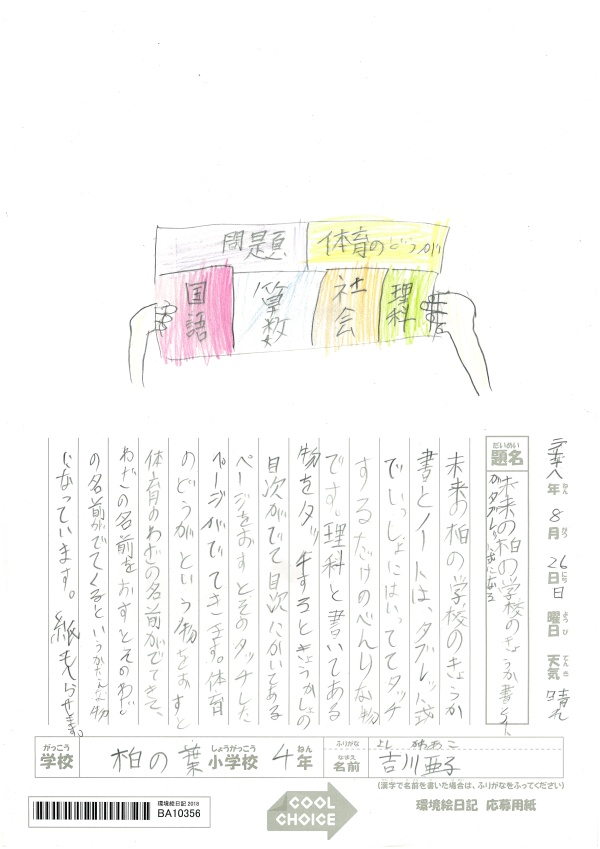 問題
体育のどうが
国語
算数
社会
理科
二〇一八年8月26日日曜日 天気 晴れ
ねん
がつ
にち
ようび
てんき
だいめい
題名
未来の柏の学校のきょうか書とノート
がタブレット式になる
未来の柏の学校のきょうか
書とノートは、タブレット式
でいっしょにはいっててタッチ
するだけのべんりな物
です。理科と書いてある
物をタッチするときょうかしょの
目次がでて目次にかいてある
ページをおすとそのタッチした
ページがでてきます。体育
のどうがという物をおすと
体育のわざの名前がでてきて、
わざの名前をおすとそのわざ
の名前がでてくるというかんたんな物
になっています。紙もへらせます。
がっこう
学校
柏の葉
しょうがっこう
小学校
4
ねん
年
ふりがな
よしかわあこ
なまえ
名前
吉川亜子
(漢字で名前を書いた場合は、ふりがなをふってください)
環境絵日記 2018
BA10356
COOL
CHOICE
環境絵日記 応募用紙